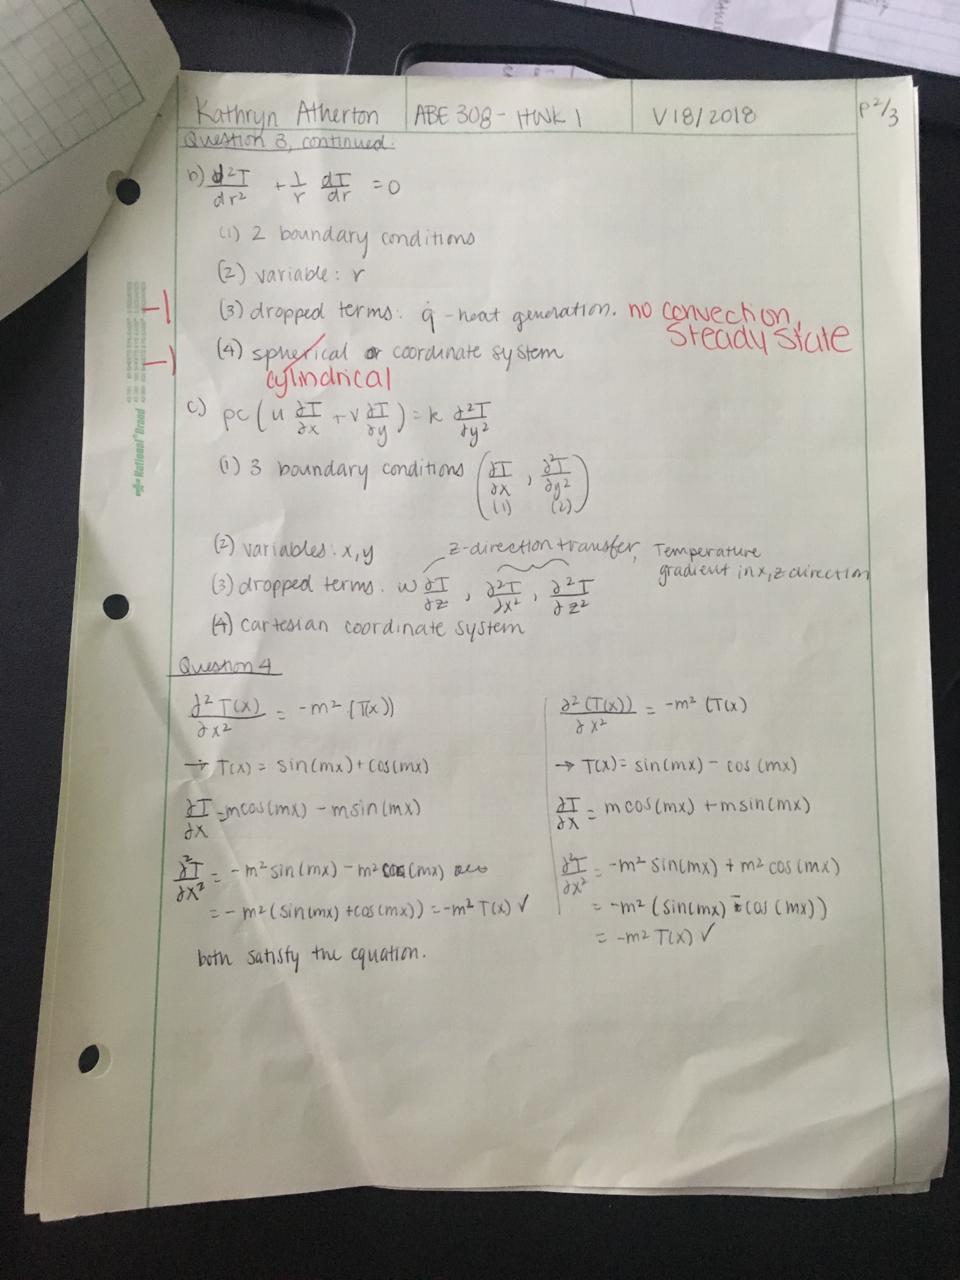 Kathryn Atherton ABE 308 - HWK 1 V18/2018 P 2/3
Question 3, continued:
b) d²T/dr² + 1/r dT/dr = 0
(1) 2 boundary conditions
(2) variable: r
-1 (3) dropped terms: q̇ - heat generation. no convection, steady state
-1 (4) spherical or coordinate system
cylindrical
c) ρc(u ∂T/∂x + v ∂T/∂y) = k ∂²T/∂y²
(1) 3 boundary conditions (∂T/∂x (1), ∂²T/∂y² (2))
(2) variables: x, y
z-direction transfer, Temperature gradient in x, z direction
(3) dropped terms: w ∂T/∂z, ∂²T/∂x², ∂²T/∂z²
(4) cartesian coordinate system
Question 4
∂²T(x)/∂x² = -m² (T(x))
→ T(x) = sin(mx) + cos(mx)
∂T/∂x = mcos(mx) - msin(mx)
∂²T/∂x² = -m² sin(mx) - m² cos(mx)
= -m² (sin(mx) + cos(mx)) = -m² T(x) ✓
both satisfy the equation.
∂²(T(x))/∂x² = -m² (T(x)
→ T(x) = sin(mx) - cos(mx)
∂T/∂x = mcos(mx) + msin(mx)
∂²T/∂x² = -m² sin(mx) + m² cos(mx)
= -m² (sin(mx) - cos(mx))
= -m² T(x) ✓
National Brand